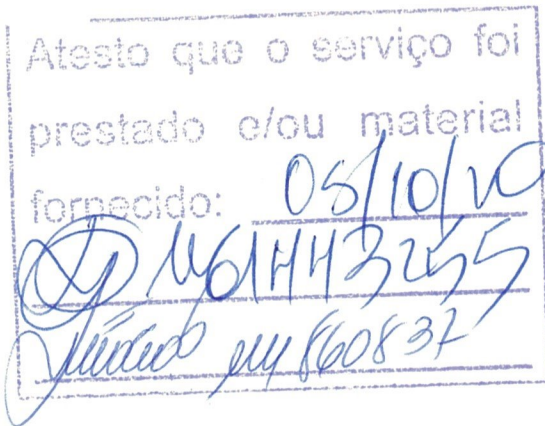 Atesto que o serviço foi
prestado e/ou material
fornecido: 05/10/20
860837